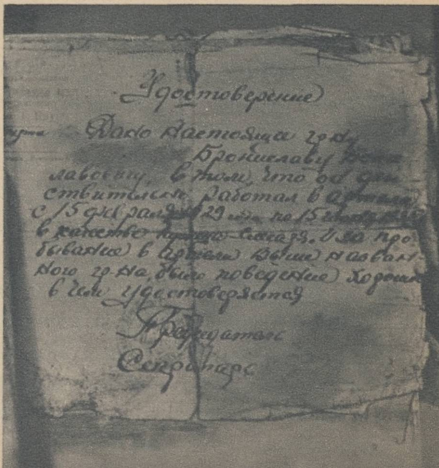 Удостоверение
Дано настоящее гр-ну
Брониславу
лавовичу, в том, что он дей
ствительно работал в артели
с 15 февраля 1929 года по 15
в качестве И за пре-
бывание в артели выше назван-
ного гр-на было поведение хорошее
в чем удостоверяется
Председатель
Секретарь